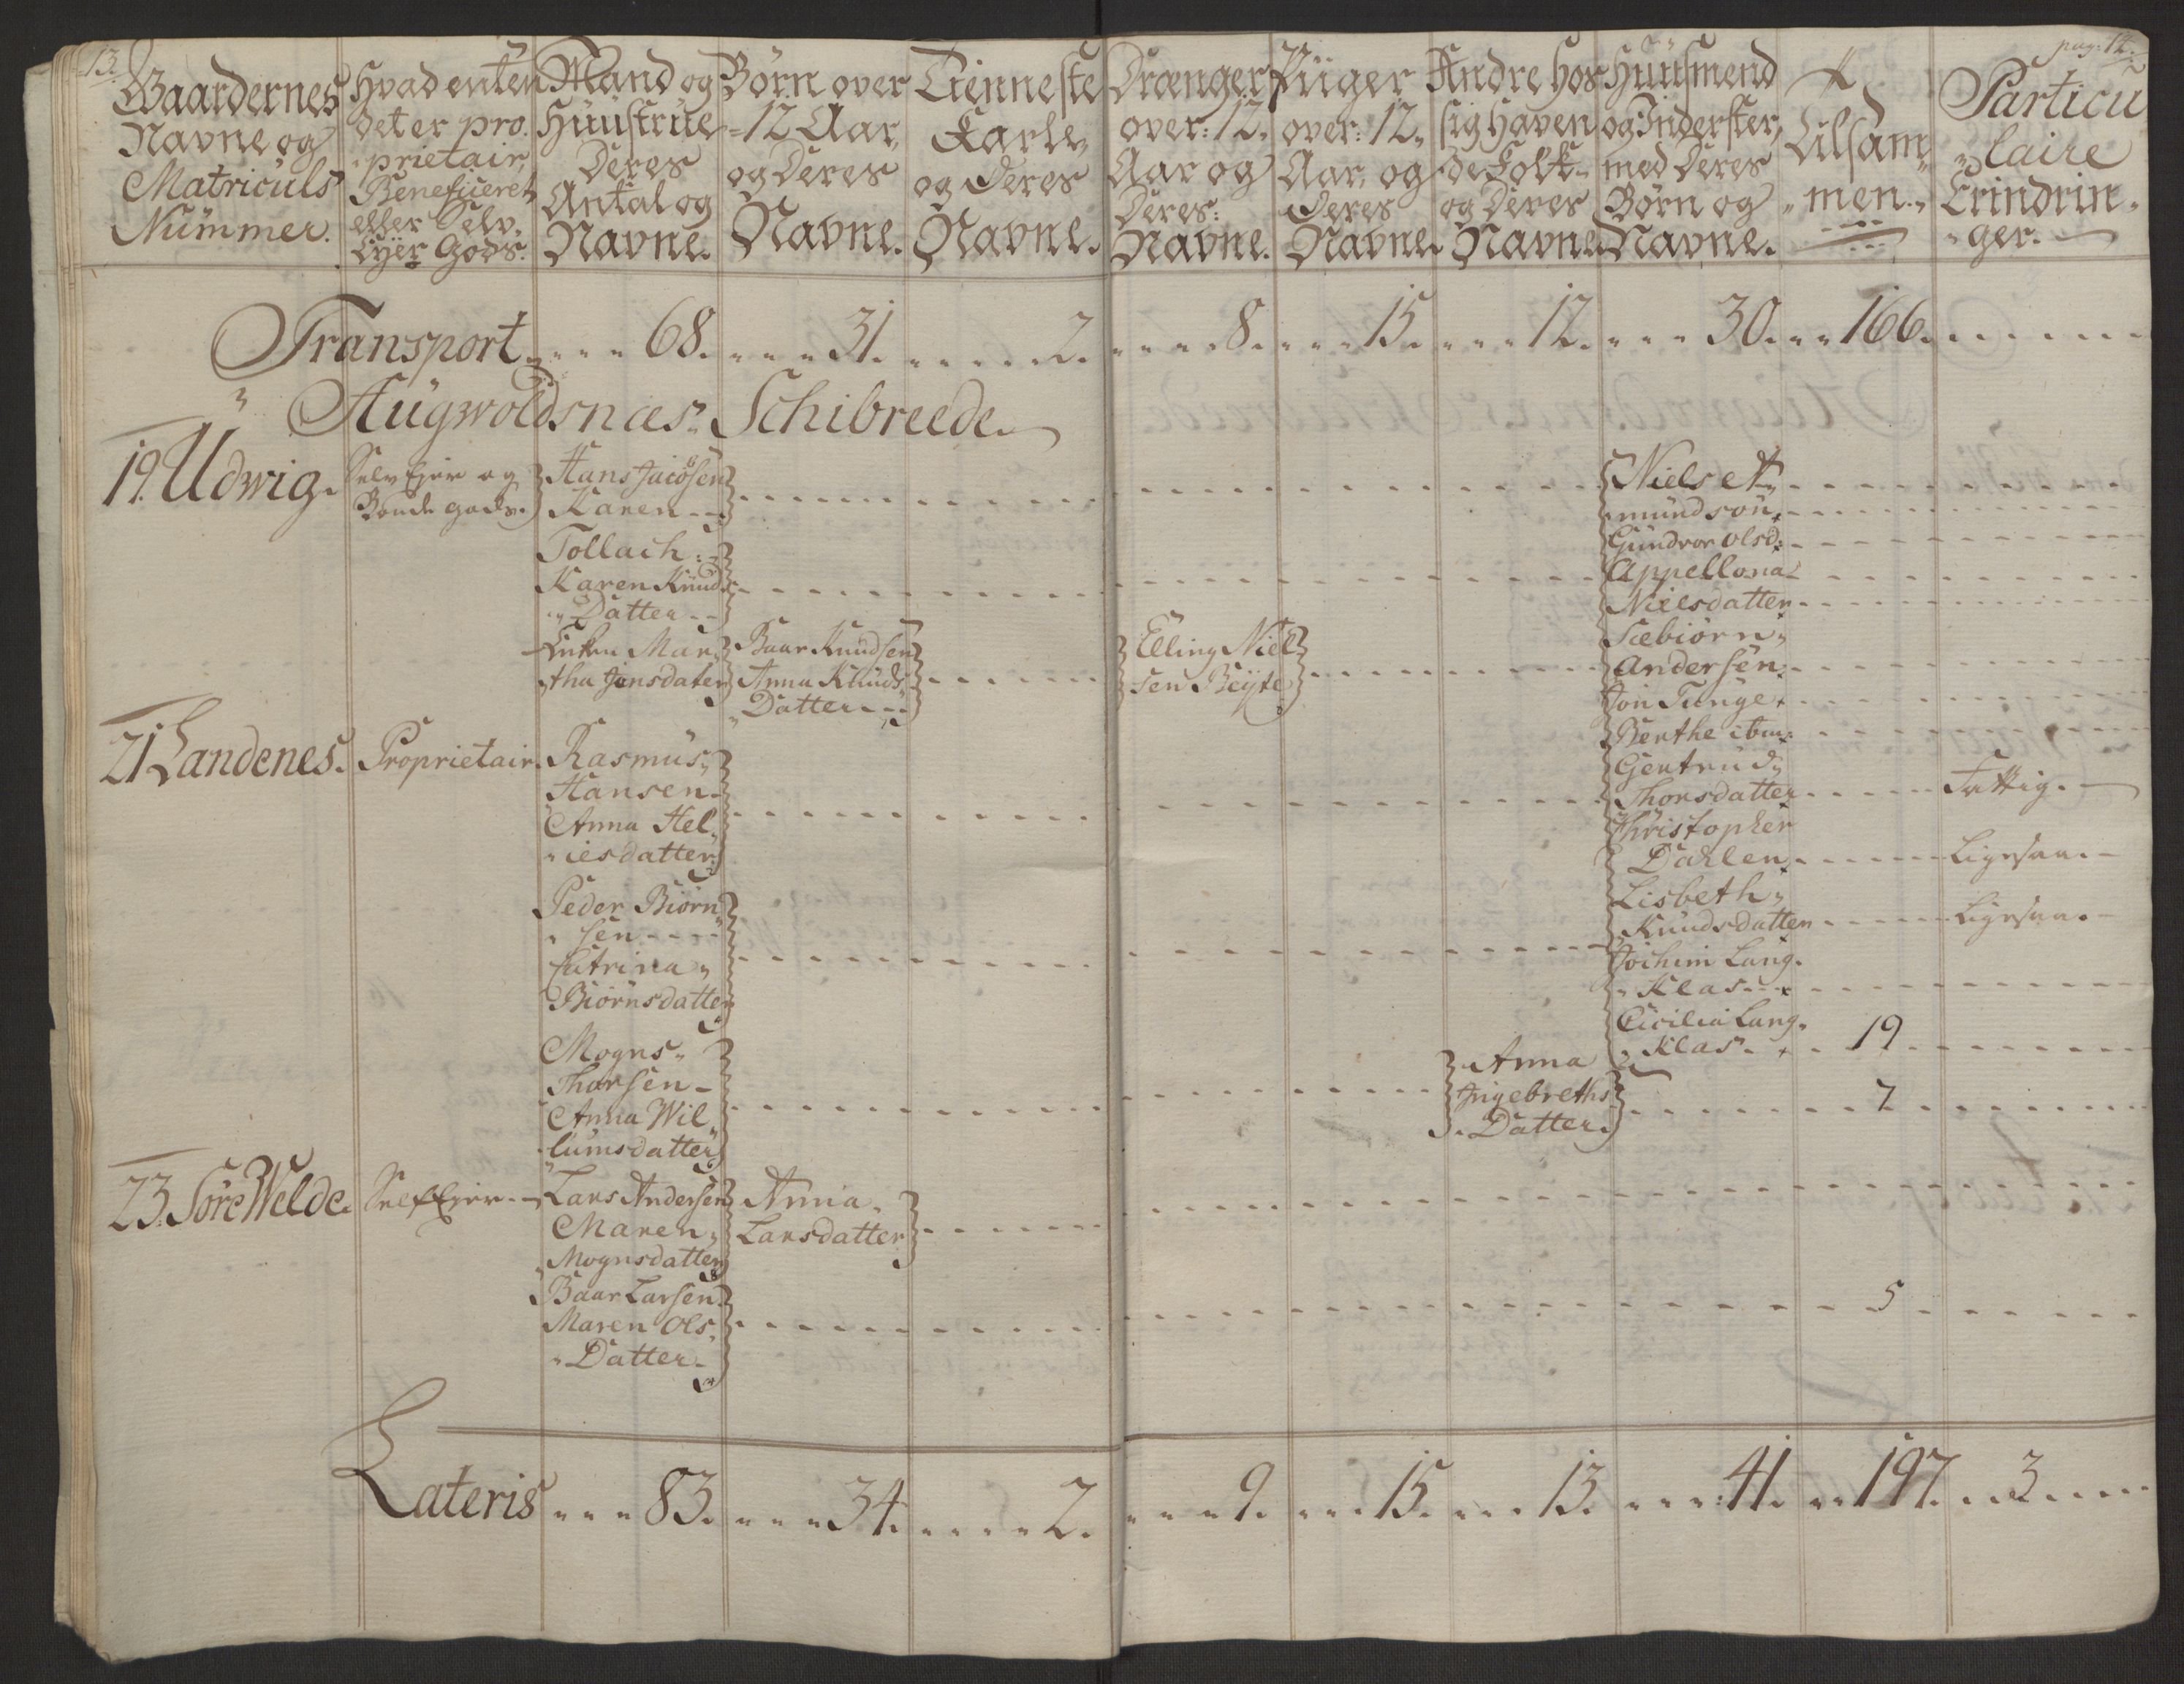 13.
pag: 14.
Gaardernes
Navne og
Matriculs
Nummer.
Hvad enten
det er pro-
prietair,
Beneficeret
eller Selv
Eyer Gods.
Mand og
Huustrue
Deres
Antal og
Navne.
Børn over
12 Aar,
og Deres
Navne.
Tienneste
Karle,
og Deres
Navne.
Drænger
over: 12.
Aar og
Deres:
Navne.
Piiger
over: 12.
Aar, og
Deres
Navne.
Andre hos
sig haven
de Folk
og Deres
Navne
Huusmend
og Inderster,
med Deres
Børn og
Navne.
Tilsam
men.
Particu
laire
Erindrin
ger.
Transport 68. 31. 2. 8. 15. 12. 30. 166.
Augwoldsnæs Schibreede
19. Udwig.
Selv Ejer og
Bonde gods.
Hans Jacobsen
Karen
Tollach
Karen Knud
Datter
Enken Mar
tha Jensdater
Baar Knudsen
Anna Knuds
Datter
Elling Niel
sen Beyte
Niels A
mundsøn
Gundvor Olsd:
Appellona
Nielsdatter
Sæbiørn
Andersen
Jon Tunge
Berthe ibm:
Gertrud
Thorsdatter Fattig.
Christopher
Dahlen Ligesaa.
Lisbeth
Knudsdatter Ligesaa.
Jochim Lang
Klas
Cicilia Lang
Klas 19
21 Landenes. Proprietair.
Rasmus
Hansen
Anna Hel
iesdatter
Peder Biørn
sen
Catrina
Biørnsdatter
Mogns
Thorsen
Anna Wil
lumsdatter
Anna
Ingebreths
Datter. 7
23. Søre Welde. Self Ejer
Lars Andersen
Maren
Mognsdatter
Baar Larsen
Maren Ols
Datter
Anna
Larsdatter
5
Lateris 83. 34. 2. 9. 15. 13. 41. 197. 3